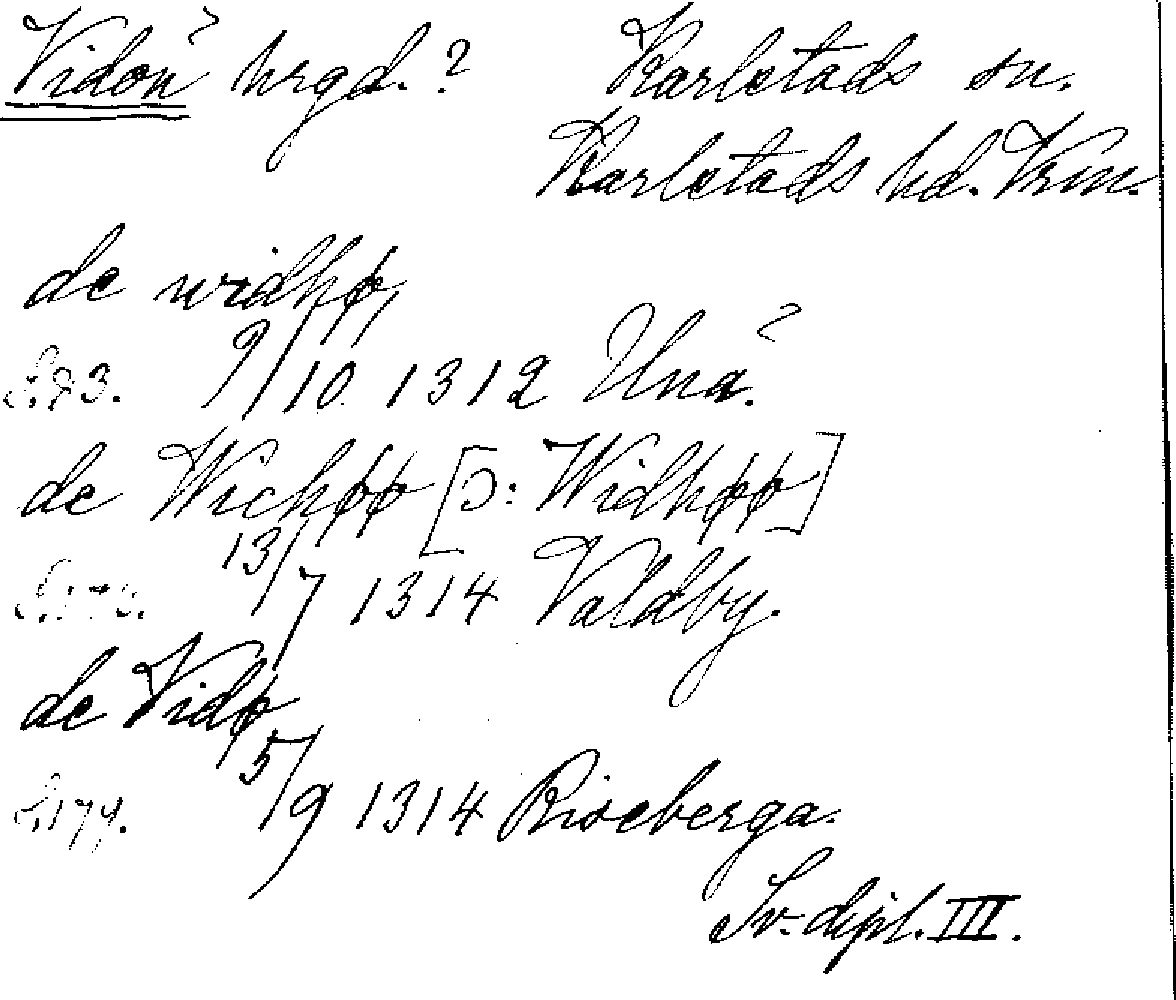 Vidön? hrgd.? Karlstads sn.
Karlstads hd. Vrm.
de widhø,
S. 93. 9/10 1312 Unå?
de Wichøø [ɔ: Widhøø]
13/7 1314 Valdby.
de Vidø
S. 179. 15/9 1314 Riseberga.
Sv. dipl. III.